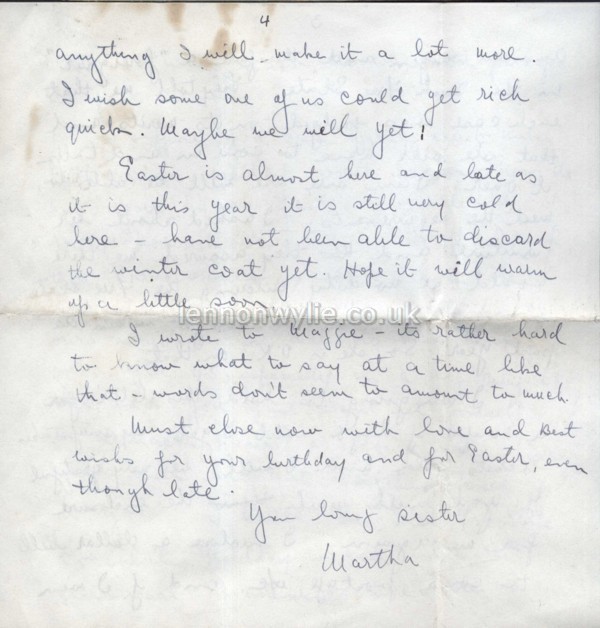 4
anything I will make it a lot more.
I wish some one of us could get rich
quick. Maybe we will yet!
Easter is almost here and late as
it is this year it is still very cold
here - have not been able to discard
the winter coat yet. Hope it will warm
up a little soon
lennonwylie.co.uk
I wrote to Maggie - its rather hard
to know what to say at a time like
that - words don't seem to amount to much.
Must close now with love and best
wishs for your birthday and for Easter, even
though late.
Your loving sister
Martha